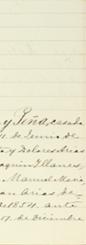 y Peña, casada
de Junio de
y Dolores Arias
Joaquin Illanes,
Manuel Maria
an Arias de
de 1854. ante
de Diciembre